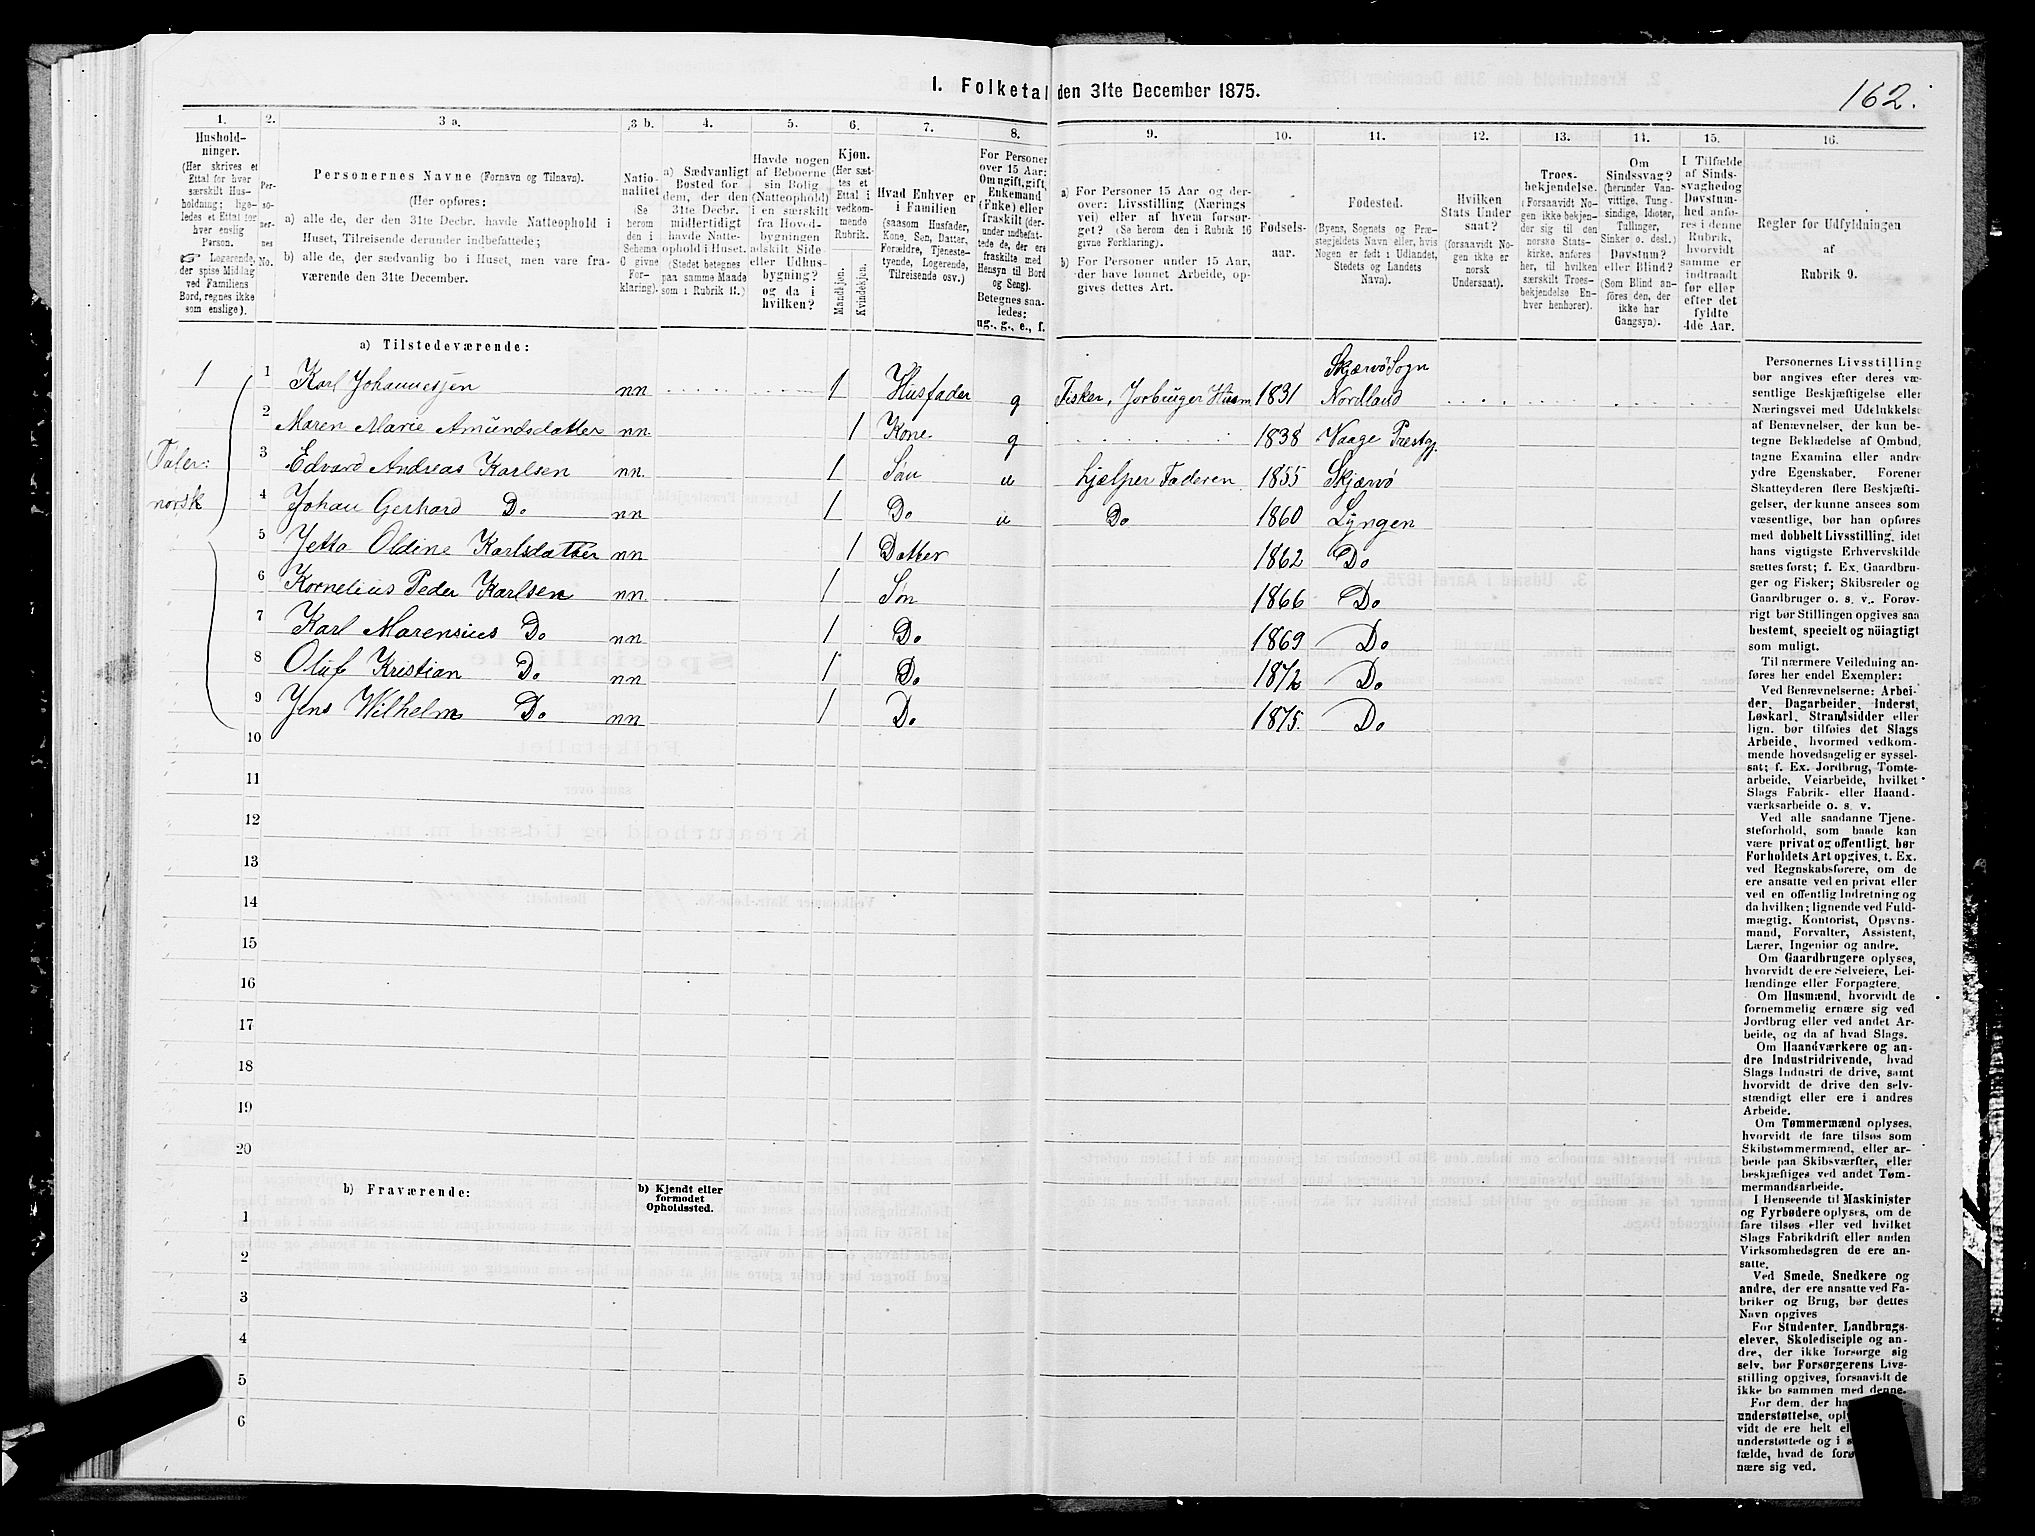 I. Folketal den 31te December 1875.
162.
1. 2. 3 a. 3 b. 4. 5. 6. 7. 8. 9. 10. 11. 12. 13. 14. 15. 16.
Hushold-
ninger.
(Her skrives et
Ettal for hver
særskilt Hus-
holdning; lige-
ledes et Ettal for
hver enslig
Person.
Logerende,
der spise Middag
ved Familiens
Bord, regnes ikke
som enslige).
Per-
so-
ner-
nes
No.
Personernes Navne (Fornavn og Tilnavn).
(Her opføres:
a) alle de, der den 31te Decbr. havde Natteophold i
Huset, Tilreisende derunder indbefattede;
b) alle de, der sædvanlig bo i Huset, men vare fra-
værende den 31te December.
Natio-
nalitet
(Se
herom
den i
Schema
C givne
For-
klaring).
a) Sædvanligt
Bosted for
dem, der den
31te Decbr.
midlertidigt
havde Natte-
ophold i Huset.
(Stedet betegnes
paa samme Maade
som i Rubrik 11.)
Havde nogen
af Beboerne
sin Bolig
(Natteophold)
i en særskilt
fra Hoved-
bygningen
adskilt Side
eller Udhus-
bygning?
og da i
hvilken?
Kjøn.
(Her sæt-
tes et
Ettal i
vedkom-
mende
Rubrik.
Mandkjøn.
Kvindekjøn.
Hvad Enhver er
i Familien
(saasom Husfader,
Kone, Søn, Datter,
Forældre, Tjeneste-
tyende, Logerende,
Tilreisende osv.)
For Personer
over 15 Aar:
Om ugift, gift,
Enkemand
(Enke) eller
fraskilt (der-
under indbefat-
tede de, der ere
fraskilte med
Hensyn til Bord
og Seng).
Betegnes saa-
ledes:
ug., g., e., f.
a) For Personer 15 Aar og der-
over: Livsstilling (Nærings
vei) eller af hvem forsør-
get? (Se herom den i Rubrik 16
givne Forklaring).
b) For Personer under 15 Aar,
der have lønnet Arbeide, op-
gives dettes Art.
Fødsels-
aar.
Fødested.
(Byens, Sognets og Præ-
stegjeldets Navn eller, hvis
Nogen er født i Udlandet,
Stedets og Landets
Navn).
Hvilken
Stats Under
saat?
(forsaavidt No-
gen ikke er
norsk
Undersaat).
Troes-
bekjendelse.
(Forsaavidt No-
gen ikke bekjen-
der sig til den
norske Stats-
kirke, anføres
her, til hvilken
særskilt Troes-
bekjendelse En-
hver henhører).
Om
Sindssvag?
(herunder Van-
vittige, Tung-
sindige, Idioter,
Tullinger,
Sinker o. desl.)
Døvstum?
eller Blind?
(Som Blind an-
føres den, der
ikke har
Gangsyn).
I Tilfælde
af Sinds-
svaghed og
Døvstum-
hed anfø-
res i denne
Rubrik,
hvorvidt
samme er
indtraadt
før eller
efter det
fyldte
4de Aar.
Regler for Udfyldningen
af
Rubrik 9.
a) Tilstedeværende:
1 1 Karl Johannesjen nn 1 Husfader g Fisker, Jorbruger Husm 1831 Skjærvö Sogn Nordland
2 Maren Marie Amundsdatter nn 1 Kone g 1838 Vaage Prestgj.
Taler:
3 Edvard Andreas Karlsen nn 1 Søn u hjælper Faderen 1855 Skjærvö
norsk
4 Johan Gerhard Do nn 1 Do u Do 1860 Lyngen
5 Jetta Oldine Karlsdatter nn 1 Datter 1862 Do
6 Kornelius Peder Karlsen nn 1 Søn 1866 Do
7 Karl Marensius Do nn 1 Do 1869 Do
8 Oluf Kristian Do nn 1 Do 1872 Do
9 Jens Wilhelm Do nn 1 Do 1875. Do
10
11
12
13
14
15
16
17
18
19
20
b) Fraværende:
b) Kjendt eller
formodet
Opholdssted.
1
2
3
4
5
6
Personernes Livsstilling
bør angives efter deres væ-
sentlige Beskjæftigelse eller
Næringsvei med Udelukkelse
af Benævnelser, der kun be-
tegne Beklædelse af Ombud,
tagne Examina eller andre
ydre Egenskaber. Forener
Skatteyderen flere Beskjæfti-
gelser, der kunne ansees som
væsentlige, bør han opføres
med dobbelt Livsstilling, idet
hans vigtigste Erhvervskilde
sættes først; f. Ex. Gaardbru-
ger og Fisker; Skibsreder og
Gaardbruger o. s. v. Forøv-
rigt bør Stillingen opgives saa
bestemt, specielt og nöiagtigt
som muligt.
Til nærmere Veiledning an-
føres her endel Exempler:
Ved Benævnelserne: Arbei-
der, Dagarbeider, Inderst,
Løskarl, Strandsidder eller
lign. bør tilføies det Slags
Arbeide, hvormed vedkom-
mende hovedsagelig er syssel-
sat; f. Ex. Jordbrug, Tomte-
arbeide, Veiarbeide, hvilket
Slags Fabrik- eller Haand-
værksarbeide o. s. v.
Ved alle saadanne Tjene-
steforhold, som baade kan
være privat og offentligt, bør
Forholdets Art opgives, t. Ex.
ved Regnskabsførere, om de
ere ansatte ved en privat eller
ved en offentlig Indretning og
da hvilken; lignende ved Fuld-
mægtig, Kontorist, Opsyns-
mand, Forvalter, Assistent,
Lærer, Ingeniør og andre.
Om Gaardbrugere oplyses,
hvorvidt de ere Selveiere, Lei-
lændinge eller Forpagtere.
Om Husmænd, hvorvidt de
fornemmelig ernære sig ved
Jordbrug eller ved andet Ar-
beide, og da af hvad Slags.
Om Haandværkere og an-
dre Industridrivende, hvad
Slags Industri de drive, samt
hvorvidt de drive den selv-
stændigt eller ere i andres
Arbeide.
Om Tømmermænd oplyses,
hvorvidt de fare tilsøs som
Skibstømmermænd, eller ar-
beide paa Skibsværfter, eller
beskjæftiges ved andet Tøm-
mermandsarbeide.
I Henseende til Maskinister
og Fyrbødere oplyses, om de
fare tilsøs eller ved hvilket
Slags Fabrikdrift eller anden
Virksomhedsgren de ere an-
satte.
Ved Smede, Snedkere og
andre, der ere ansatte ved Fa-
briker og Brug, bør dettes
Navn opgives
For Studenter, Landbrugs-
elever, Skoledisciple og an-
dre, der ikke forsørge sig
selv, bør Forsørgerens Livs-
stilling opgives, forsaavidt de
ikke bo sammen med denne.
For dem, der ha
understøttelse, opl
vidt de ere helt el
understøttede og i s
fælde, hvad de forø
nære sig ved.